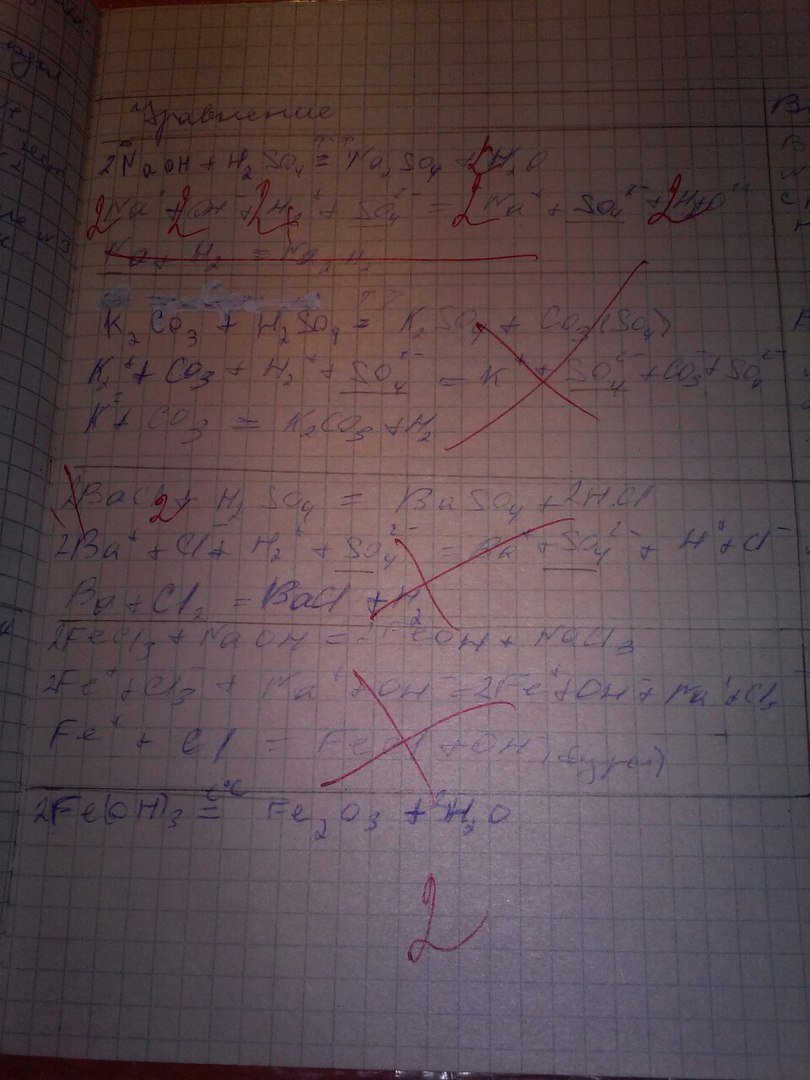 Уравнение
2NaOH + H₂SO₄ = Na₂SO₄ + 2H₂O
2Na⁺ + 2OH⁻ + 2H⁺ + SO₄²⁻ = 2Na⁺ + SO₄²⁻ + 2H₂O
K₂CO₃ + H₂SO₄ = K₂SO₄ + CO₃(SO₄)
K₂⁺ + CO₃ + H₂⁺ + SO₄²⁻ = K⁺ + SO₄²⁻ + CO₃ + SO₄²⁻
K⁺ + CO₃ = K₂CO₃ + H₂
BaCl₂ + H₂SO₄ = BaSO₄ + 2HCl
2Ba⁺ + Cl⁻ + H₂⁺ + SO₄²⁻ = Ba⁺ + SO₄²⁻ + H⁺ + Cl⁻
Ba + Cl₂ = BaCl + H₂
2FeCl₃ + NaOH = 2FeOH + NaCl₃
2Fe⁺ + Cl₃⁻ + Na⁺ + OH⁻ = 2Fe⁺ + OH⁻ + Na⁺ + Cl₃
Fe⁺ + Cl = FeCl + OH
2Fe(OH)₃ =t°C Fe₂O₃ + H₂O
2